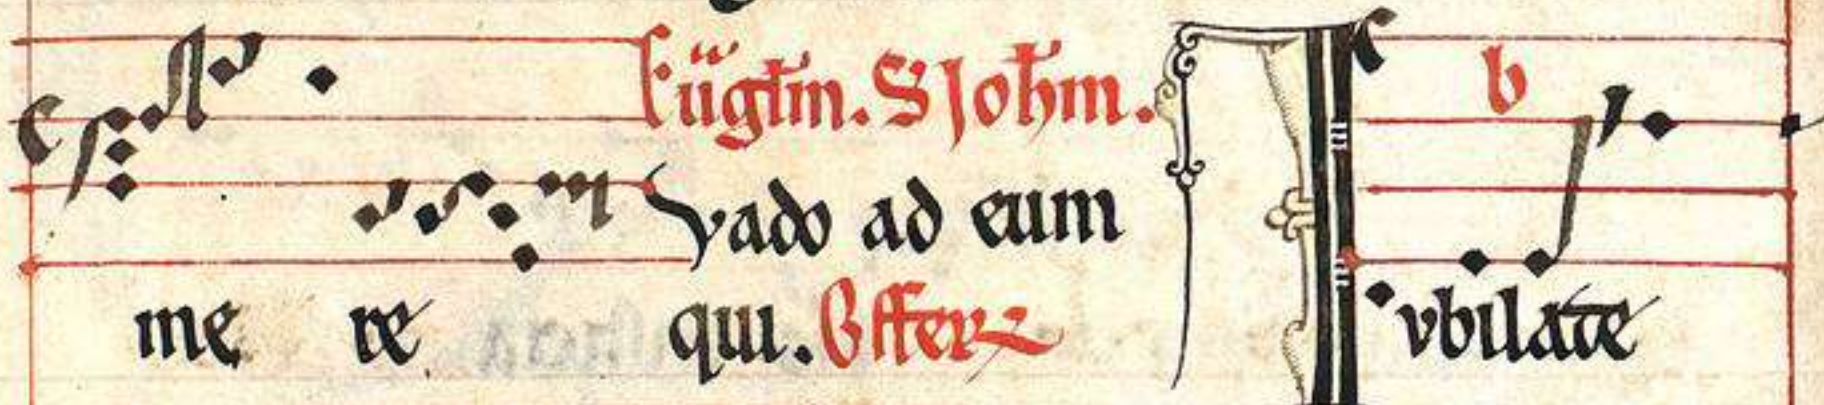 Eügtm. S Johm.
vado ad eum
me re qui. Offerz
b
Iubilate